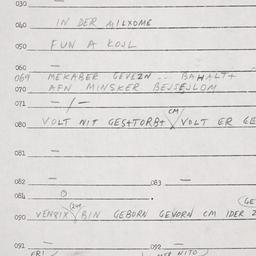 030 —
040 IN DER MILXOME
050 FUN A KOJL
060 —
069 MEKABER GEVEZN ... BAHALT+
070 AFN MINSKER BEJSEJLOM
071 — / —
CM
080 VOLT NIT GES+TORB+ VOLT ER GE
081 —
082 — 083 —
084 .
(GE
090 VENSIX BIN GEBORN GEVORN CM IDER Z
091 — 092 —
NITO